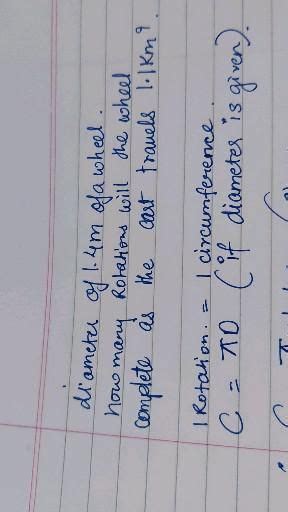 diameter of 1.4m of a wheel.
how many Rotations will the wheel
complete as the cart travels 1.1Km?
1 Rotation. = 1 circumference.
C = πD (if diameter is given).